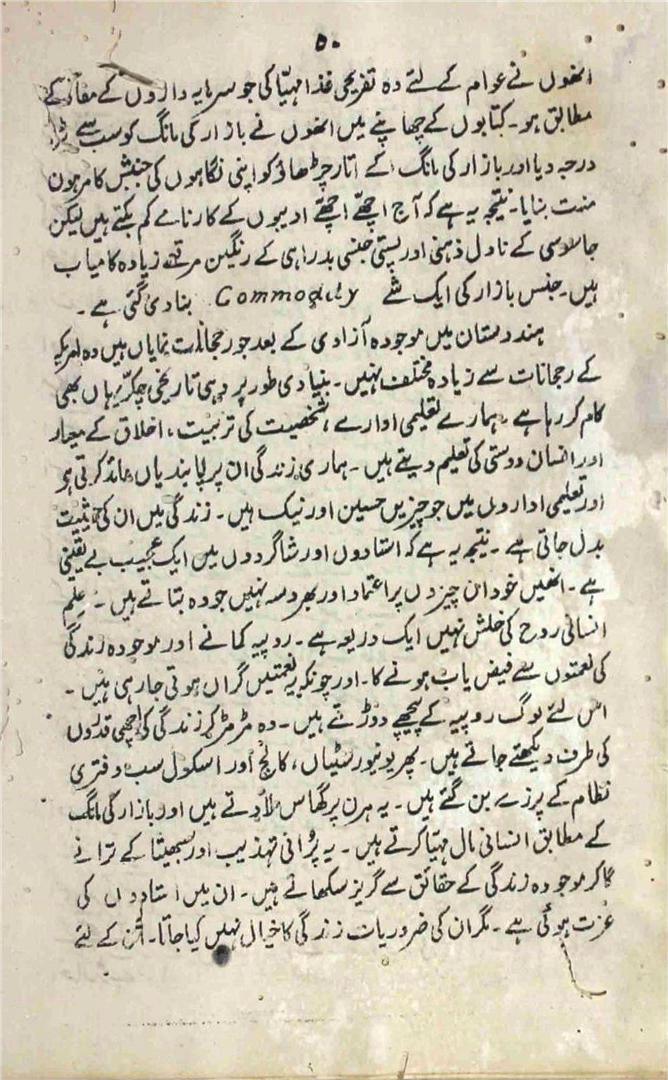 ۵۰
انھوں نے عوام کے لئے وہ تفریحی غذا مہیّا کی جو سرمایہ داروں کے مفاد کے
مطابق ہو۔ کتابوں کے چھاپنے میں انھوں نے بازار کی مانگ کو سب سے بڑا
درجہ دیا اور بازار کی مانگ کے اتار چڑھاؤ کو اپنی نگاہوں کی جنبش کا مرہون
منت بنایا۔ نتیجہ یہ ہے کہ آج اچھّے اچھّے ادیبوں کے کارنامے کم بکتے ہیں لیکن
جاسوسی کے ناول ذہنی اور پستی جنسی بدراہی کے رنگین مرقعے زیادہ کامیاب
ہیں۔ جنس بازار کی ایک شے Commodity بنادی گئی ہے۔
ہندوستان میں موجودہ آزادی کے بعد جو رجحانات نمایاں ہیں وہ امریکہ
کے رجحانات سے زیادہ مختلف نہیں۔ بنیادی طور پر وہی تاریخی چکّر یہاں بھی
کام کر رہا ہے ہمارے تعلیمی ادارے، شخصیت کی تربیت، اخلاق کے معیار
اور انسان دوستی کی تعلیم دیتے ہیں۔ ہماری زندگی ان پر پابندیاں عائد کرتی ہو
اور تعلیمی اداروں میں جو چیزیں حسین اور نیک ہیں۔ زندگی میں ان کی حیثیت
بدل جاتی ہے۔ نتیجہ یہ ہے کہ استادوں اور شاگردوں میں ایک عجیب بے یقینی
ہے۔ انھیں خود ان چیزوں پر اعتماد اور بھروسہ نہیں جو وہ بتاتے ہیں۔ علم
انسانی روح کی خلش نہیں ایک ذریعہ ہے۔ روپیہ کمانے اور موجودہ زندگی
کی نعمتوں سے فیض یاب ہونے کا۔ اور چونکہ یہ نعمتیں گراں ہوتی جارہی ہیں۔
اس لئے لوگ روپیہ کے پیچھے دوڑتے ہیں۔ وہ مڑ مڑ کر زندگی کی اچھی قدروں
کی طرف دیکھتے جاتے ہیں۔ پھر یونیورسٹیاں، کالج اور اسکول سب دفتری
نظام کے پرزے بن گئے ہیں۔ یہ ہرن پر گھاس لادتے ہیں اور بازار کی مانگ
کے مطابق انسانی مال مہیّا کرتے ہیں۔ یہ پُرانی تہذیب اور سبھیتا کے ترانے
گا کر موجودہ زندگی کے حقائق سے گریز سکھاتے ہیں۔ ان میں استادوں کی
عزت ہوتی ہے۔ مگر ان کی ضروریات زندگی کا خیال نہیں کیا جاتا۔ اُن کے لئے